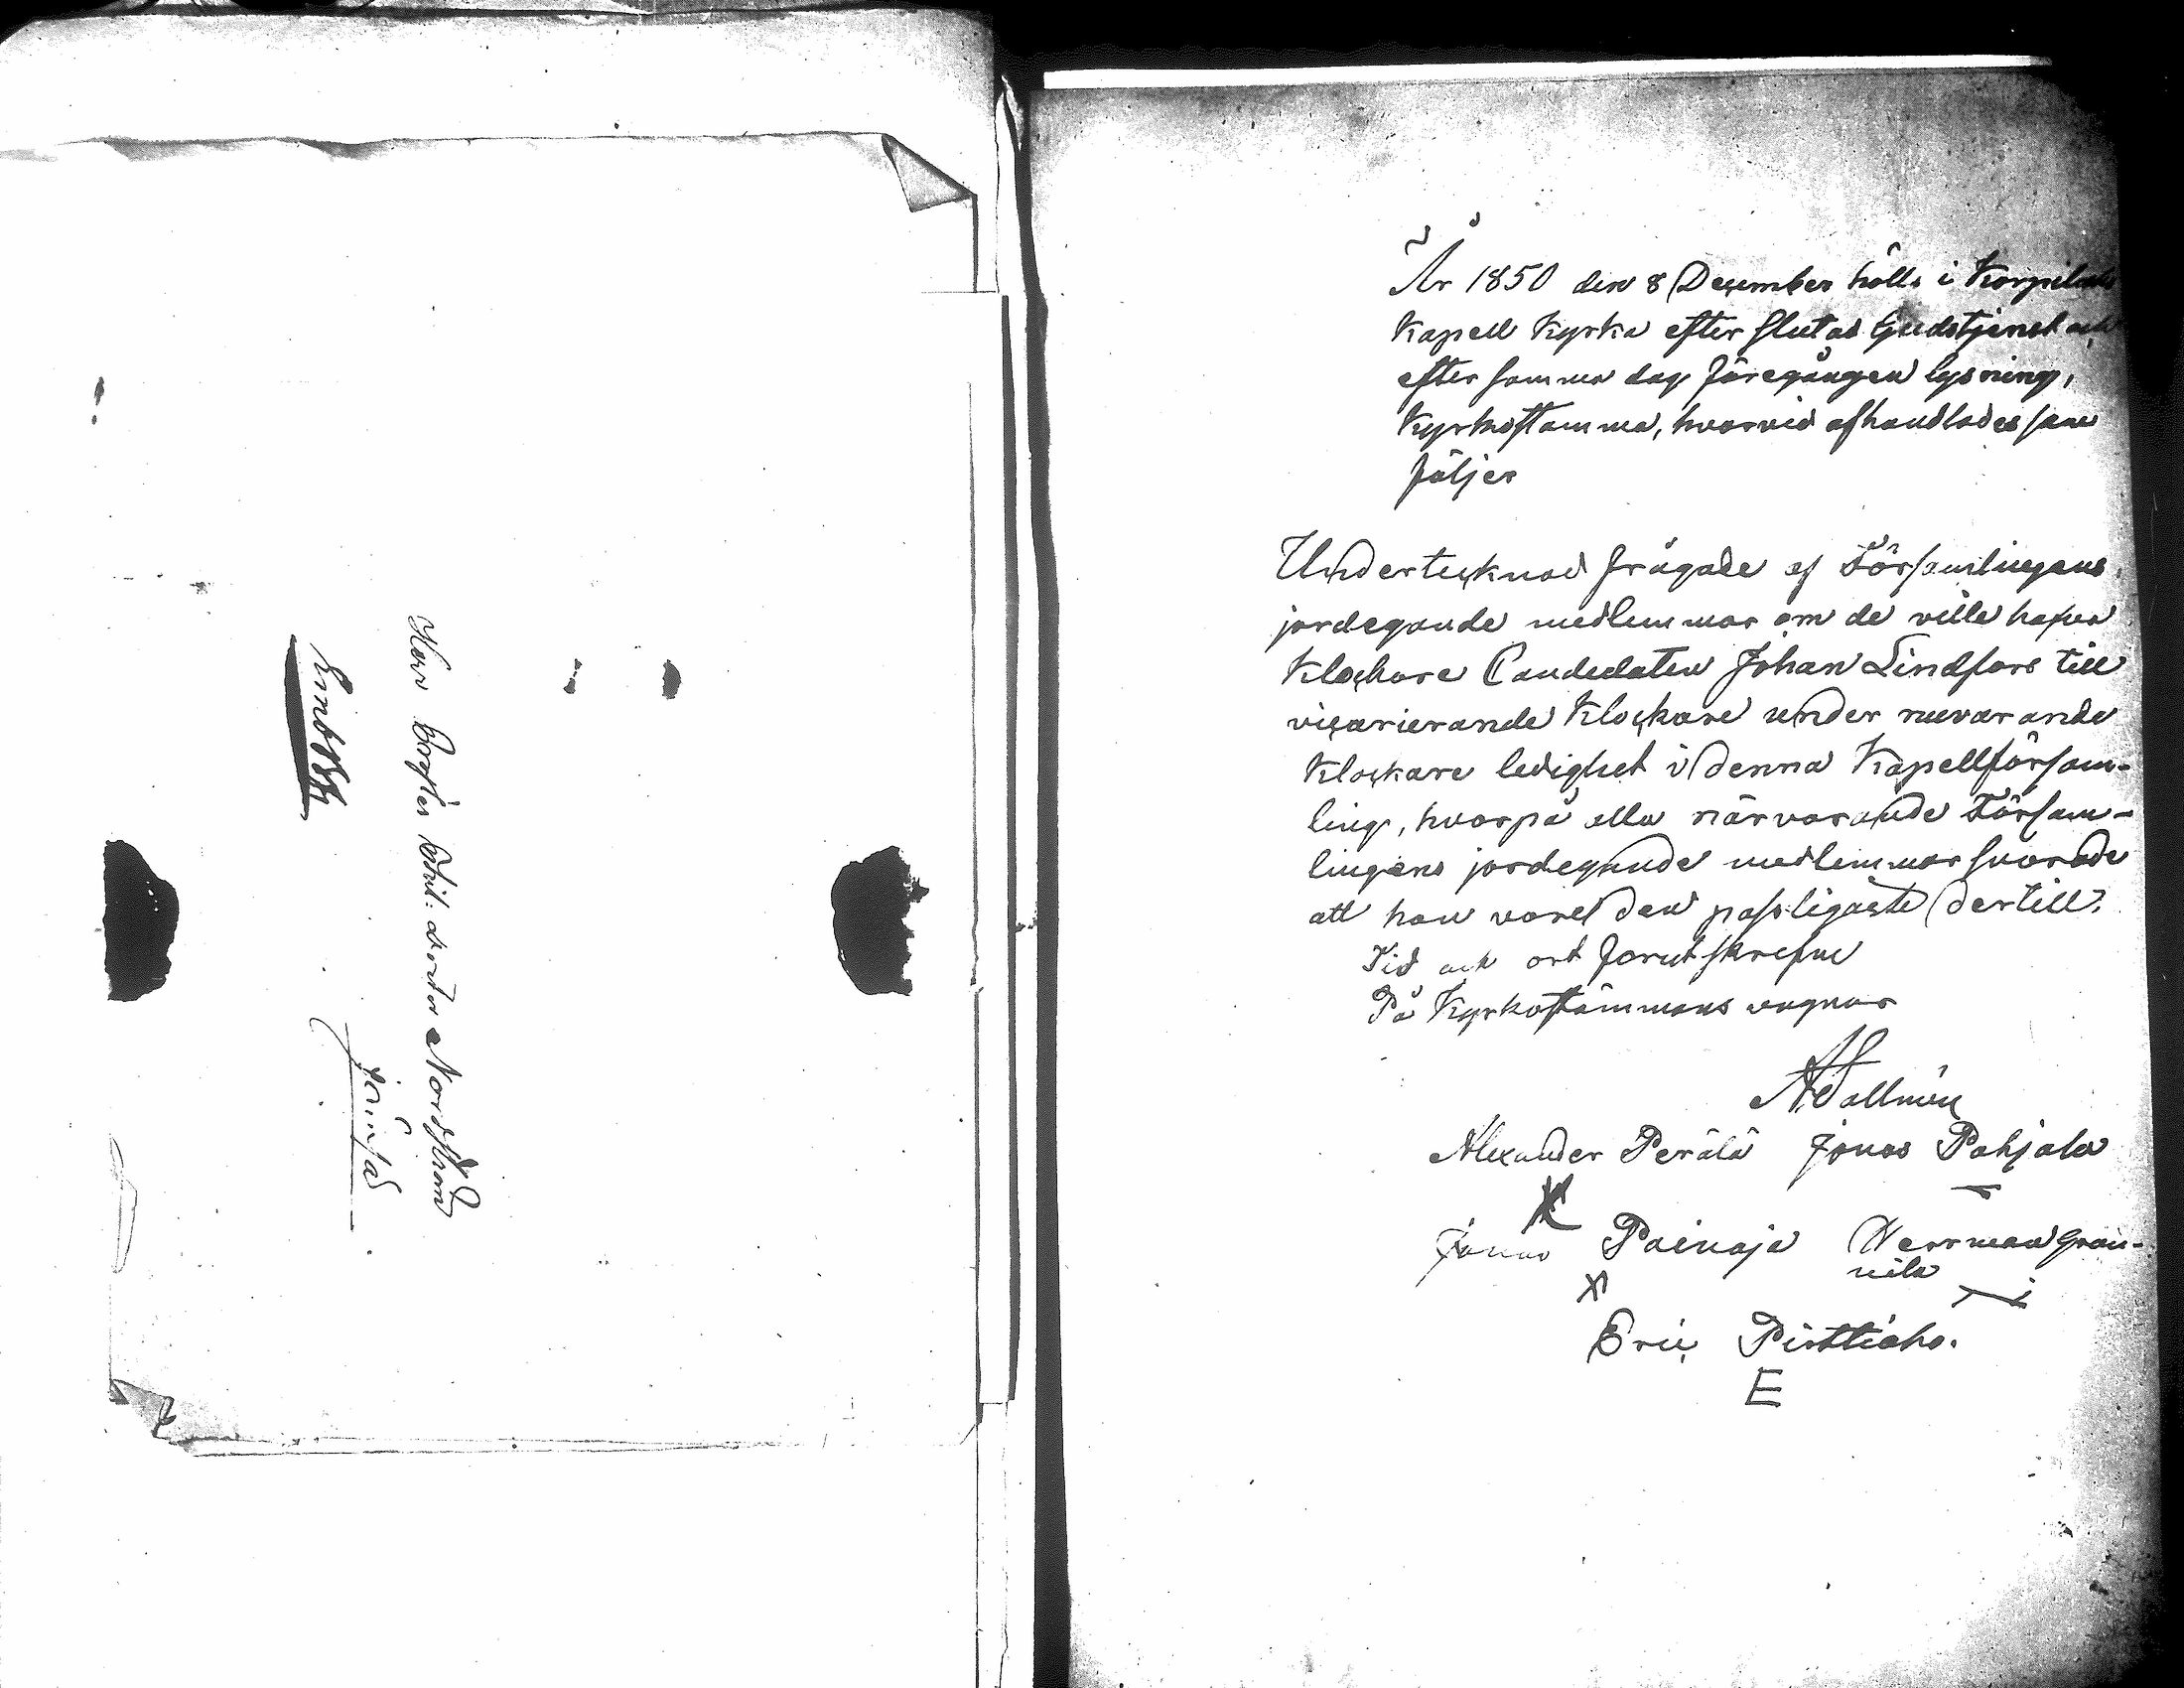 Herr Doctor Nordstrom
Jönsas
År 1850 den 8 December hölls i Korpilaks
Kapell Kyrka efter slutad Gudstjenst och
efter samma dag föregången lysning,
Kyrkostämma, hvarvid afhandlades som
följer
Undertecknad frågade af Församlingens
jordegande medlemmar om de ville hafva
Klockare Candidaten Johan Lindfors till
vicarierande Klockare under nuvarande
Klockare ledighet i denna Kapellförsam-
ling, hvarpå alla närvarande Försam-
lingens jordegande medlemmar svarade
att han vore den passligaste dertill.
Tid och ort förutskrefne
På Kyrkostämmans vägnar
Alexander Perälä Jonas Pohjola
Jonas Painaja Herrman Gran-
nila
Eric Pirttiaho.
E